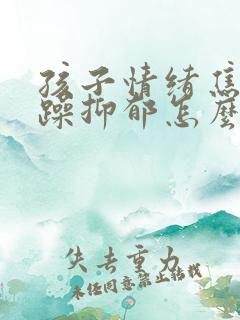 孩子情绪焦
躁抑郁怎么
失去重力
未经同意禁止转载